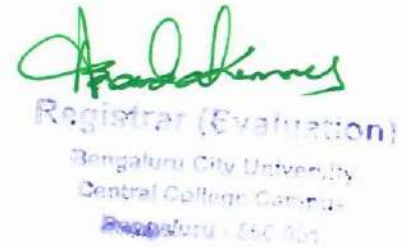 Registrar (Evaluation)
Bengaluru City University
Central College Campus
Bengaluru - 560 001